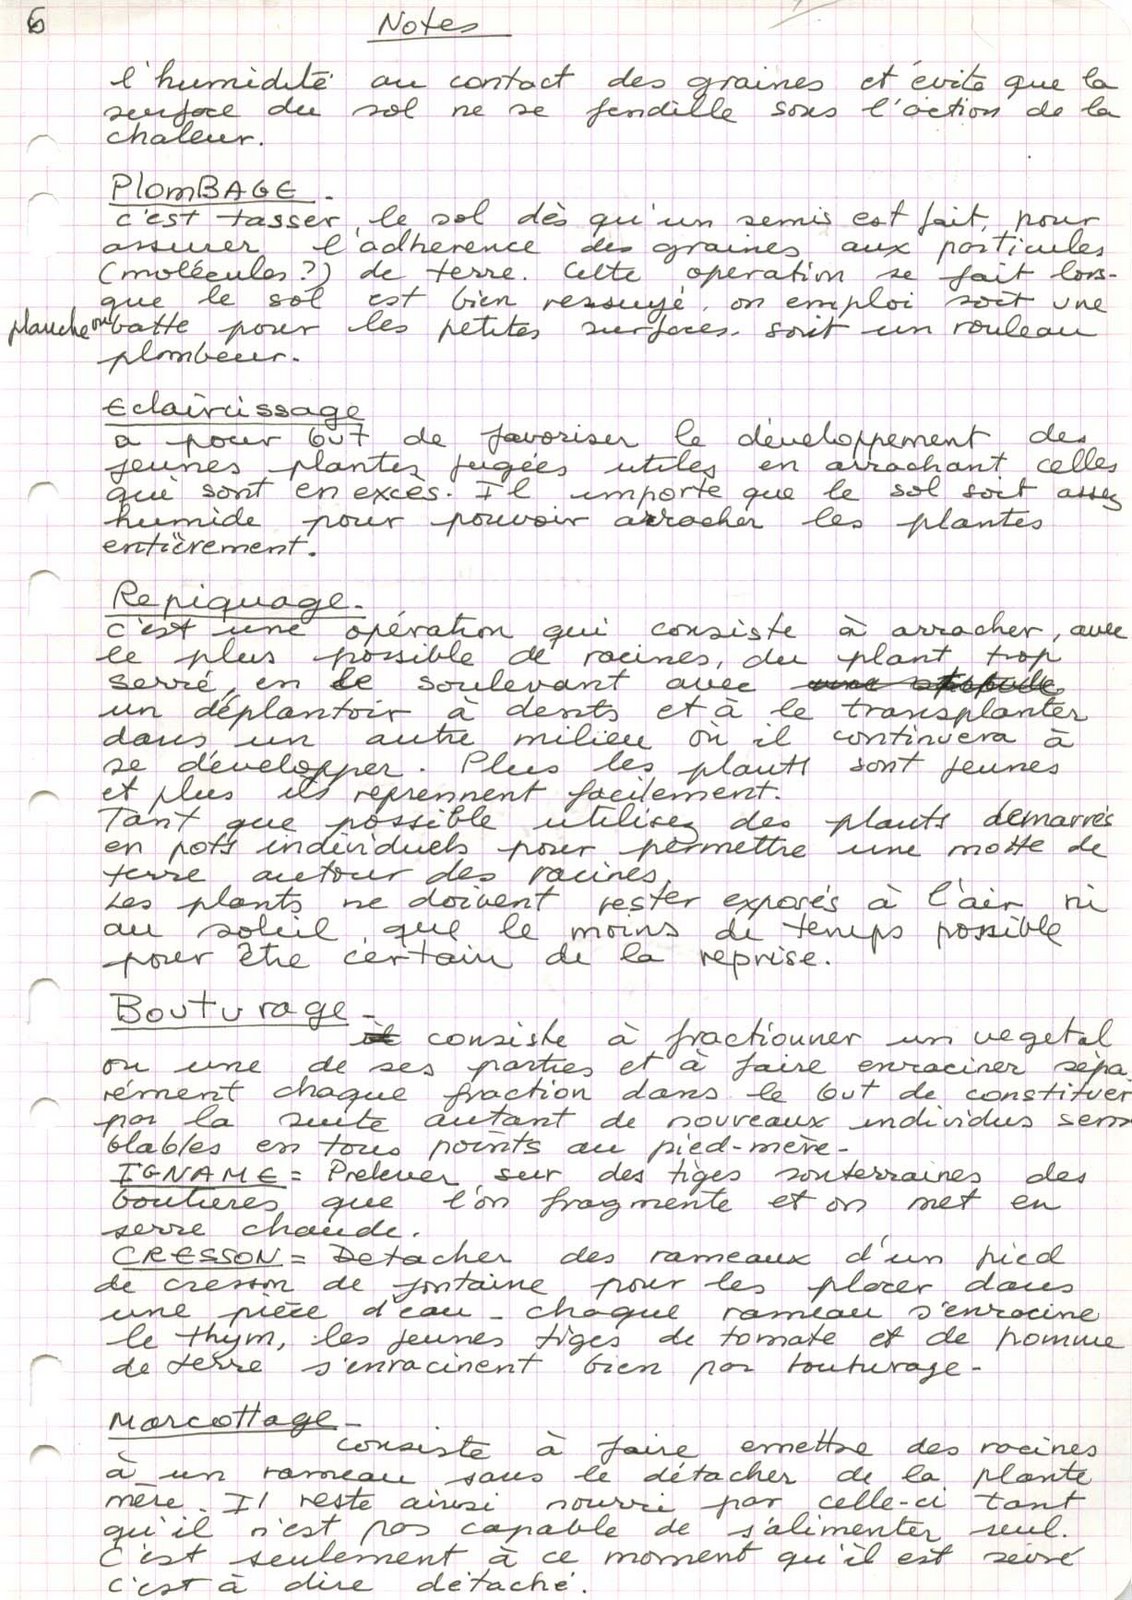 6
Notes
l'humidité au contact des graines et évite que la
surface du sol ne se fendille sous l'action de la
chaleur.
PlomBAGE -
c'est tasser le sol dès qu'un semis est fait, pour
assurer l'adherence des graines aux particules
(molécules?) de terre. Cette operation se fait lors-
que le sol est bien ressuyé, on emploi soit une
planche ou batte pour les petites surfaces. soit un rouleau
plombeur.
Eclaircissage
a pour but de favoriser le développement des
jeunes plantes jugées utiles en arrachant celles
qui sont en excès. Il importe que le sol soit assez
humide pour pouvoir arracher les plantes
entièrement.
Repiquage -
C'est une opération qui consiste à arracher, avec
le plus possible de racines, du plant trop
serré, en le soulevant avec une
un déplantoir à dents et à le transplanter
dans un autre milieu où il continuera à
se développer. Plus les plants sont jeunes
et plus ils reprennent facilement.
Tant que possible utilisez des plants demarrés
en pots individuels pour permettre une motte de
terre autour des racines.
Les plants ne doivent rester exposés à l'air ni
au soleil, que le moins de temps possible
pour être certain de la reprise.
Bouturage -
il consiste à fractionner un vegetal
ou une de ses parties et à faire enraciner sépa-
rément chaque fraction dans le but de constituer
par la suite autant de nouveaux individus sem
blables en tous points au pied-mère -
IGNAME = Prelever sur des tiges souterraines des
boutures que l'on fragmente et on met en
serre chaude.
CRESSON = Detacher des rameaux d'un pied
de cresson de fontaine pour les placer dans
une pièce d'eau - chaque rameau s'enracine
le thym, les jeunes tiges de tomate et de pomme
de terre s'enracinent bien par bouturage -
Marcottage -
consiste à faire emettre des racines
à un rameau sans le détacher de la plante
mère. Il reste ainsi nourri par celle-ci tant
qu'il n'est pas capable de s'alimenter seul.
C'est seulement à ce moment qu'il est sevré
c'est à dire détaché.